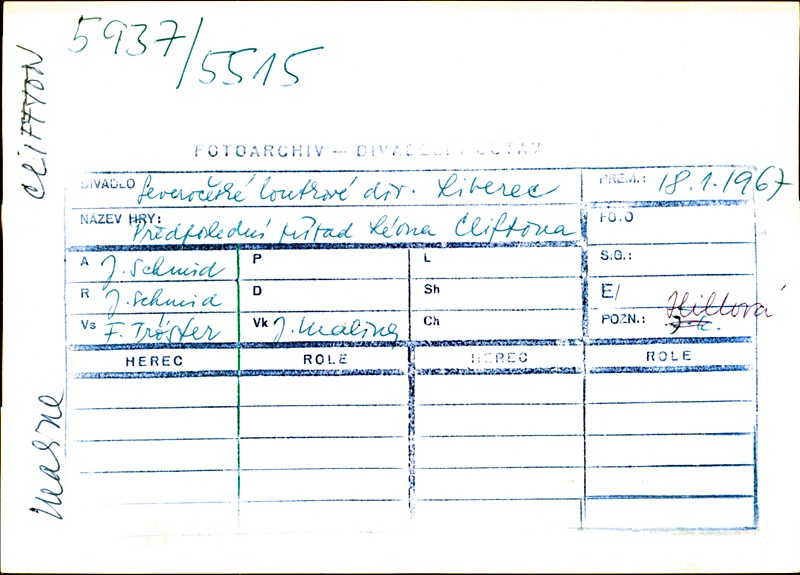 5937/5515
CLIFTTON
FOTOARCHIV — DIVADELNÍ ÚSTAV
DIVADLO Severočeské loutkové div. Liberec
PREM.: 18.1.1967
NÁZEV HRY: Předposlední případ Léona Cliftona
FOTO
A J. Schmid P L S.G.:
R J. Schmid D Sh E/
Vs F. Tröster Vk J. Malina Ch POZN.: Hillová
HEREC ROLE HEREC ROLE